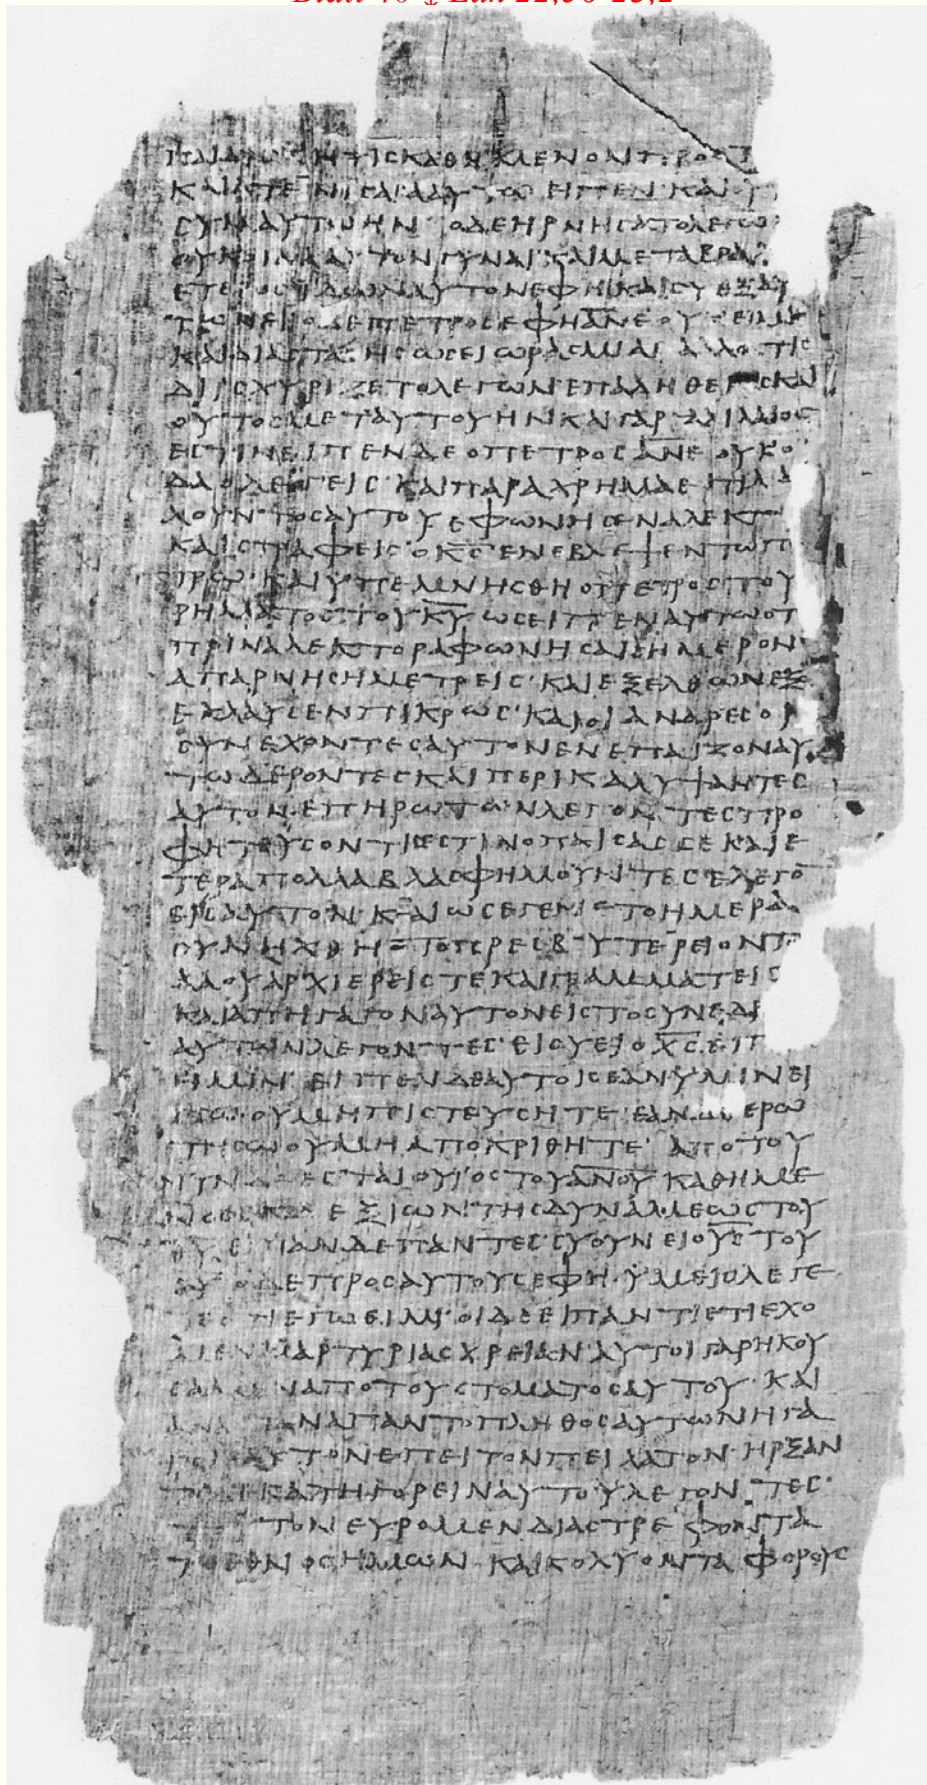 Blatt 40 ↓ Luk 22,56-23,2
ΤΙC ΚΑΘΗΜΕΝΟΝ ΠΡΟC Τ
ΚΑΙ ΑΤΕΝΙCΑCΑ ΑΥΤΩ ΕΙΠΕΝ ΚΑΙ ΟΥ
CΥΝ ΑΥΤΩ ΗΝ Ο ΔΕ ΗΡΝΗCΑΤΟ ΛΕΓΩ
ΟΥΚ ΟΙΔΑ ΑΥΤΟΝ ΓΥΝΑΙ ΚΑΙ ΜΕΤΑ ΒΡΑΧΥ
ΕΤΕΡΟC ΙΔΩΝ ΑΥΤΟΝ ΕΦΗ ΚΑΙ CΥ ΕΞ ΑΥ
ΤΩΝ ΕΙ Ο ΔΕ ΠΕΤΡΟC ΕΦΗ ΑΝΕ ΟΥΚ ΕΙΜΙ
ΚΑΙ ΔΙΑCΤΑCΗC ΩCΕΙ ΩΡΑC ΜΙΑC ΑΛΛΟC ΤΙC
ΔΙΙCΧΥΡΙΖΕΤΟ ΛΕΓΩΝ ΕΠ ΑΛΗΘΕΙΑC ΚΑΙ
ΟΥΤΟC ΜΕΤ ΑΥΤΟΥ ΗΝ ΚΑΙ ΓΑΡ ΓΑΛΙΛΑΙΟC
ΕCΤΙΝ ΕΙΠΕΝ ΔΕ Ο ΠΕΤΡΟC ΑΝΕ ΟΥΚ ΟΙ
ΔΑ Ο ΛΕΓΕΙC ΚΑΙ ΠΑΡΑΧΡΗΜΑ ΕΤΙ ΛΑ
ΛΟΥΝΤΟC ΑΥΤΟΥ ΕΦΩΝΗCΕΝ ΑΛΕΚΤΩ
ΚΑΙ CΤΡΑΦΕΙC Ο ΚC ΕΝΕΒΛΕΨΕΝ ΤΩ Π
ΤΡΩ ΚΑΙ ΥΠΕΜΝΗCΘΗ Ο ΠΕΤΡΟC ΤΟΥ
ΡΗΜΑΤΟC ΤΟΥ ΚΥ ΩC ΕΙΠΕΝ ΑΥΤΩ ΟΤ
ΠΡΙΝ ΑΛΕΚΤΟΡΑ ΦΩΝΗCΑΙ CΗΜΕΡΟΝ
ΑΠΑΡΝΗCΗ ΜΕ ΤΡΕΙC ΚΑΙ ΕΞΕΛΘΩΝ ΕΞ
ΕΚΛΑΥCΕΝ ΠΙΚΡΩC ΚΑΙ ΟΙ ΑΝΔΡΕC ΟΙ
CΥΝΕΧΟΝΤΕC ΑΥΤΟΝ ΕΝΕΠΑΙΖΟΝ ΑΥ
ΤΩ ΔΕΡΟΝΤΕC ΚΑΙ ΠΕΡΙΚΑΛΥΨΑΝΤΕC
ΑΥΤΟΝ ΕΠΗΡΩΤΩΝ ΛΕΓΟΝΤΕC ΠΡΟ
ΦΗΤΕΥCΟΝ ΤΙC ΕCΤΙΝ Ο ΠΑΙCΑC CΕ ΚΑΙ Ε
ΤΕΡΑ ΠΟΛΛΑ ΒΛΑCΦΗΜΟΥΝΤΕC ΕΛΕΓΟ
ΕΙC ΑΥΤΟΝ ΚΑΙ ΩC ΕΓΕΝΕΤΟ ΗΜΕΡΑ
CΥΝΗΧΘΗ ΤΟ ΠΡΕCΒΥΤΕΡΕΙΟΝ Τ
ΛΑΟΥ ΑΡΧΙΕΡΕΙC ΤΕ ΚΑΙ ΓΡΑΜΜΑΤΕΙC
ΚΑΙ ΑΠΗΓΑΓΟΝ ΑΥΤΟΝ ΕΙC ΤΟ CΥΝΕΔΡ
ΑΥΤΩΝ ΛΕΓΟΝΤΕC ΕΙ CΥ ΕΙ Ο ΧC ΕΙΠ
ΗΜΙΝ ΕΙΠΕΝ ΔΕ ΑΥΤΟΙC ΕΑΝ ΥΜΙΝ ΕΙ
ΠΩ ΟΥ ΜΗ ΠΙCΤΕΥCΗΤΕ ΕΑΝ ΔΕ ΕΡΩ
ΤΗCΩ ΟΥ ΜΗ ΑΠΟΚΡΙΘΗΤΕ ΑΠΟ ΤΟΥ
ΝΥΝ ΔΕ ΕCΤΑΙ Ο ΥΙΟC ΤΟΥ ΑΝΟΥ ΚΑΘΗΜΕ
ΝΟC ΕΚ ΔΕΞΙΩΝ ΤΗC ΔΥΝΑΜΕΩC ΤΟΥ
ΘΥ ΕΙΠΑΝ ΔΕ ΠΑΝΤΕC CΥ ΟΥΝ ΕΙ Ο ΥC ΤΟΥ
ΘΥ Ο ΔΕ ΠΡΟC ΑΥΤΟΥC ΕΦΗ ΥΜΕΙC ΛΕΓΕ
ΤΕ ΟΤΙ ΕΓΩ ΕΙΜΙ ΟΙ ΔΕ ΕΙΠΑΝ ΤΙ ΕΤΙ ΕΧΟ
ΜΕΝ ΜΑΡΤΥΡΙΑC ΧΡΕΙΑΝ ΑΥΤΟΙ ΓΑΡ ΗΚΟΥ
CΑΜΕΝ ΑΠΟ ΤΟΥ CΤΟΜΑΤΟC ΑΥΤΟΥ ΚΑΙ
ΑΝΑCΤΑΝ ΑΠΑΝ ΤΟ ΠΛΗΘΟC ΑΥΤΩΝ ΗΓΑ
ΓΟΝ ΑΥΤΟΝ ΕΠΕΙ ΤΟΝ ΠΕΙΛΑΤΟΝ ΗΡΞΑΝ
ΤΟ ΔΕ ΚΑΤΗΓΟΡΕΙΝ ΑΥΤΟΥ ΛΕΓΟΝΤΕC
ΤΟΥΤΟΝ ΕΥΡΟΜΕΝ ΔΙΑCΤΡΕΦΟΝΤΑ
ΤΟ ΕΘΝΟC ΗΜΩΝ ΚΑΙ ΚΩΛΥΟΝΤΑ ΦΟΡΟΥC